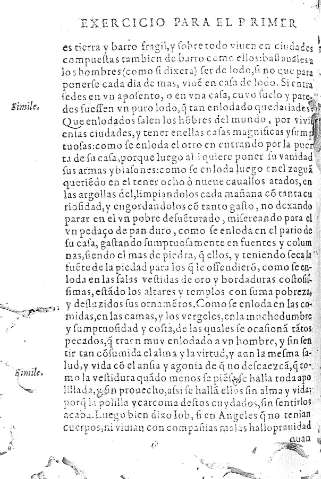 EXERCICIO PARA EL PRIMER
es tierra y barro fragil, y sobre todo viuen en ciudades
compuestas tambien de barro como ellos: ballandole a
los hombres (como si dixera) ser de lodo, si no que para
ponerse cada dia de mas, viuē en casa de lodo. Si entra
sedes en vn aposento, o en vna casa, cuyo suelo y pare-
Simile.
des fuessen vn puro lodo, q̄ tan enlodado quedariades?
Que enlodados salen los hōbres del mundo, por viuir
en las ciudades, y tener en ellas casas magnificas y sum
tuosas: como se enloda el otro en entrando por la puer
ta de su casa, porque luego al quiere poner su vanidad
sus armas y blasones: como se enloda luego en el zaguā
queriēdo en el tener ocho ò nueue cauallos atados, en
las argollas del, limpiandolos cada mañana cō tanta cu
riosidad, y engordandolos cō tanto gasto, no dexando
parar en el vn pobre desuēturado, misereando para el
vn pedaço de pan duro, como se enloda en el patio de
su casa, gastando sumptuosamente en fuentes y colum
nas, siendo el mas de piedra, q̄ ellos, y teniendo seca la
fuēte de la piedad para los q̄ le offendierō, como se en-
loda en las salas vestidas de oro y bordaduras costosis-
simas, estādo los altares y templos con suma pobreza,
y desluzidos sus ornamētos. Como se enloda en las co-
midas, en las camas, y los vergeles, en la muchedumbre
y sumptuosidad y costa, de las quales se ocasionā tātos
pecados, q̄ traen muy enlodado a vn hombre, y sin sen
tir tan cōsumida el alma y la virtud, y aun la mesma sa-
lud, y vida cō el ansia y agonia de q̄ no descaezcā, q̄ to-
Simile.
mo la vestidura quādo menos se piēsa se halla toda apo
lillada, y sin prouecho, assi se halla ellos sin alma y vida:
porq̄ la polilla y carcoma destos cuydados, sin sentirlos
acaba. Luego bien dizo Iob, si en Angeles q̄ no tenian
cuerpos, ni viuian con compañias malas hallo prauidad
quan